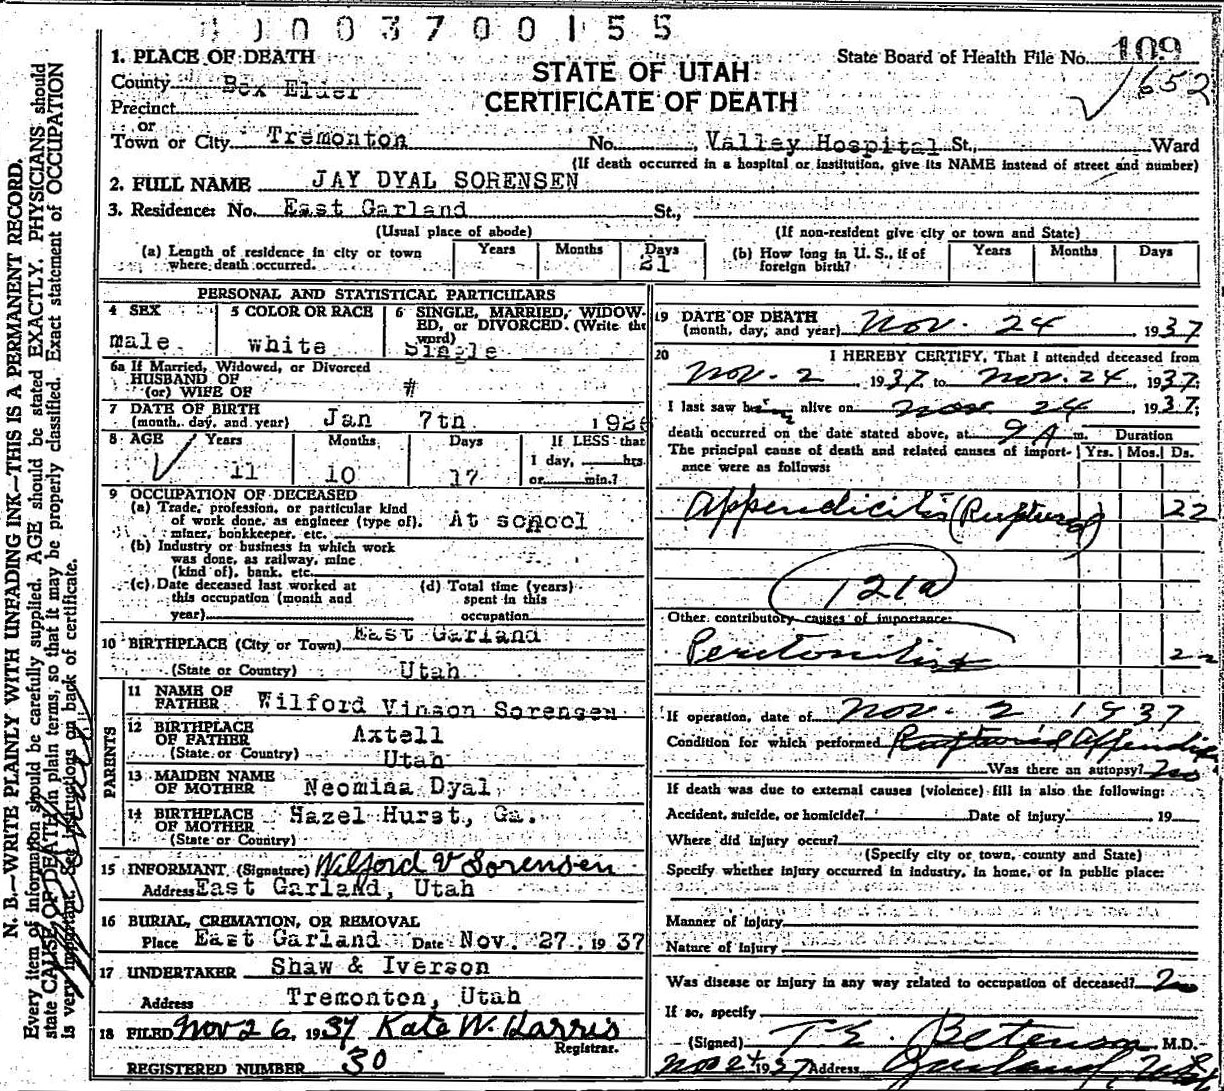 0003700155
1. PLACE OF DEATH
County Box Elder
Precinct
or
Town or City Tremonton
STATE OF UTAH
CERTIFICATE OF DEATH
State Board of Health File No. 109
652
No. Valley Hospital St., Ward
(If death occurred in a hospital or institution, give its NAME instead of street and number)
2. FULL NAME JAY DYAL SORENSEN
3. Residence: No. East Garland St.,
(Usual place of abode) (If non-resident give city or town and State)
(a) Length of residence in city or town where death occurred. Years Months Days 21
(b) How long in U. S., if of foreign birth? Years Months Days
PERSONAL AND STATISTICAL PARTICULARS
4 SEX male
5 COLOR OR RACE white
6 SINGLE, MARRIED, WIDOWED, or DIVORCED. (Write the word) Single
6a If Married, Widowed, or Divorced
HUSBAND OF
(or) WIFE OF #
7 DATE OF BIRTH
(month, day, and year) Jan 7th 1926
8 AGE Years 11 Months 10 Days 17 If LESS that
1 day, hrs.
or min.?
9 OCCUPATION OF DECEASED
(a) Trade, profession, or particular kind
of work done, as engineer (type of),
miner, bookkeeper, etc. At school
(b) Industry or business in which work
was done, as railway, mine
(kind of), bank, etc.
(c) Date deceased last worked at
this occupation (month and
year)
(d) Total time (years)
spent in this
occupation
10 BIRTHPLACE (City or Town) East Garland
(State or Country) Utah
PARENTS
11 NAME OF
FATHER Wilford Vinson Sorensen
12 BIRTHPLACE
OF FATHER Axtell
(State or Country) Utah
13 MAIDEN NAME
OF MOTHER Neomina Dyal
14 BIRTHPLACE
OF MOTHER Hazel Hurst, Ga.
(State or Country)
15 INFORMANT (Signature) Wilford V Sorensen
Address East Garland, Utah
16 BURIAL, CREMATION, OR REMOVAL
Place East Garland Date Nov. 27, 1937
17 UNDERTAKER Shaw & Iverson
Address Tremonton, Utah
18 FILED Nov 26, 1937 Kate W. Harris
Registrar.
REGISTERED NUMBER 30
19 DATE OF DEATH
(month, day, and year) Nov. 24, 1937
20 I HEREBY CERTIFY, That I attended deceased from
Nov. 2, 1937 to Nov. 24, 1937;
I last saw him alive on Nov. 24, 1937;
death occurred on the date stated above, at 9 A m. Duration
The principal cause of death and related causes of importance were as follows: Yrs. Mos. Ds.
Appendicitis (Ruptured) 22
121a
Other contributory causes of importance:
Peritonitis 22
If operation, date of Nov. 2 1937
Condition for which performed Ruptured Appendix
Was there an autopsy? no
If death was due to external causes (violence) fill in also the following:
Accident, suicide, or homicide? Date of injury , 19
Where did injury occur?
(Specify city or town, county and State)
Specify whether injury occurred in industry, in home, or in public place:
Manner of injury
Nature of injury
Was disease or injury in any way related to occupation of deceased? no
If so, specify
(Signed) T E Betenson M.D.
Nov 24 1937 Address Garland, Utah
N. B.—WRITE PLAINLY WITH UNFADING INK—THIS IS A PERMANENT RECORD.
Every item of information should be carefully supplied. AGE should be stated EXACTLY. PHYSICIANS should
state CAUSE OF DEATH in plain terms, so that it may be properly classified. Exact statement of OCCUPATION
is very important. See instructions on back of certificate.